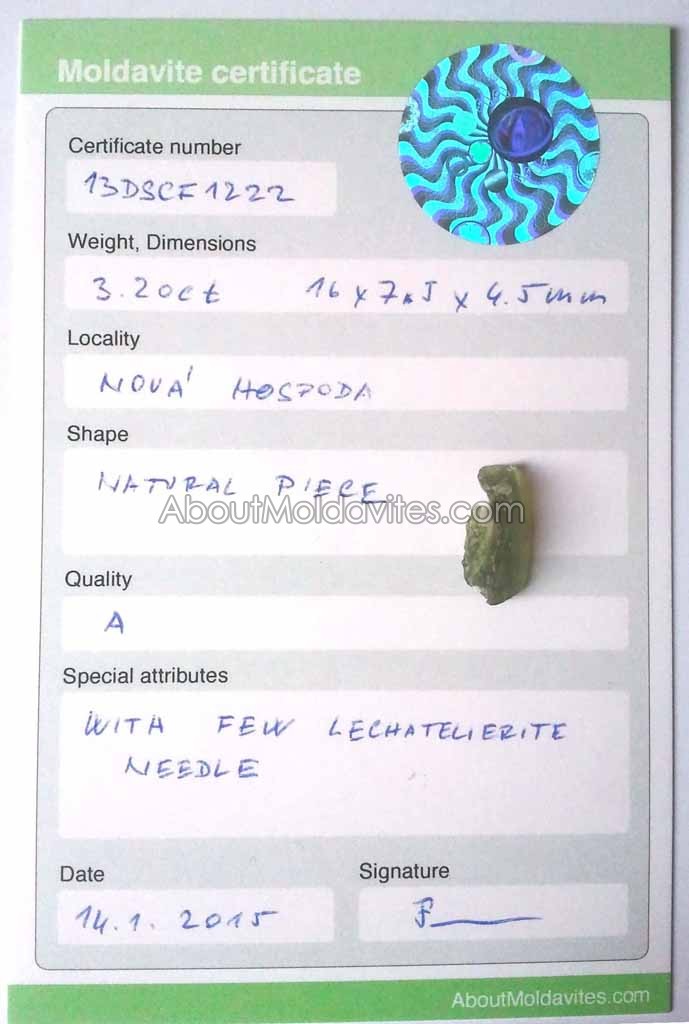 Moldavite certificate
Certificate number
13DSCF1222
Weight, Dimensions
3.20ct 16 x 7.5 x 4.5mm
Locality
NOVÁ HOSPODA
Shape
NATURAL PIECE
AboutMoldavites.com
Quality
A
Special attributes
WITH FEW LECHATELIERITE
NEEDLE
Date Signature
14.1. 2015
AboutMoldavites.com